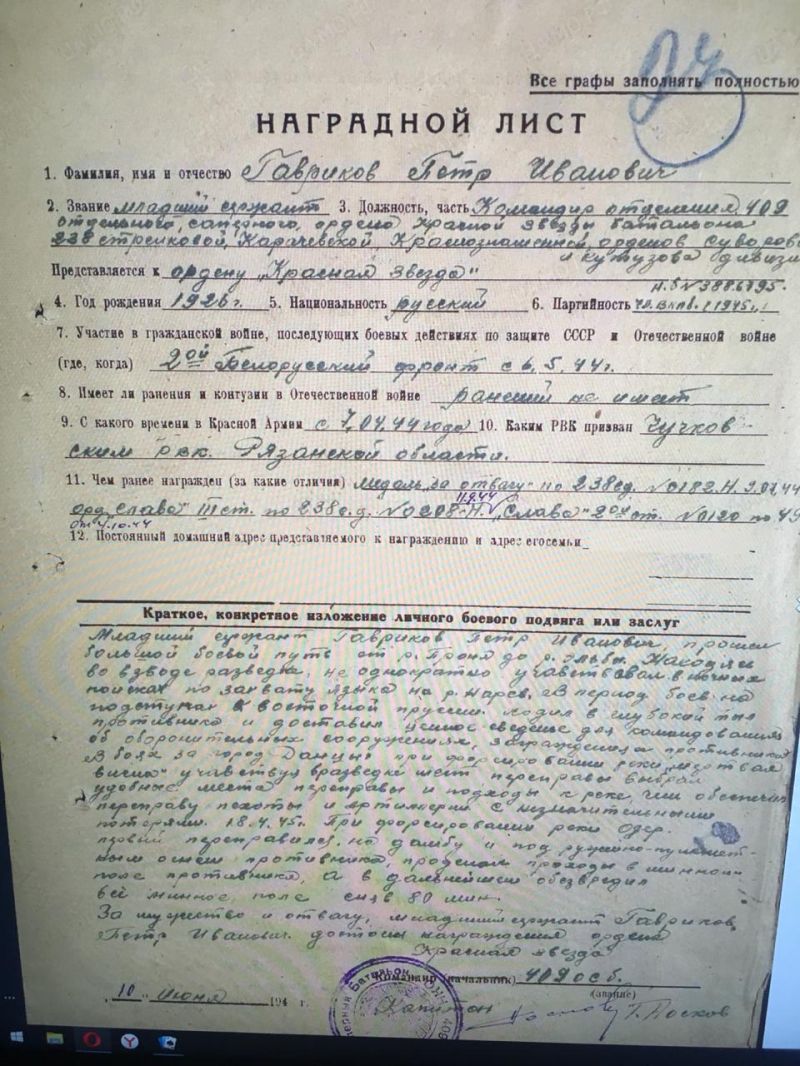 Все графы заполнять полностью
НАГРАДНОЙ ЛИСТ
1. Фамилия, имя и отчество Гавриков Пётр Иванович
2. Звание младший сержант 3. Должность, часть Командир отделения 409
отдельного, саперного, ордена Красной Звезды батальона
238 стрелковой, Карачевской, Краснознаменной, орденов Суворова
и Кутузова дивизии
Представляется к ордену „Красная Звезда"
4. Год рождения 1926 г. 5. Национальность русский 6. Партийность
7. Участие в гражданской войне, последующих боевых действиях по защите СССР и Отечественной войне
(где, когда) 2ой Белорусский фронт с 6.5.44 г.
8. Имеет ли ранения и контузии в Отечественной войне ранений не имеет
9. С какого времени в Красной Армии с 7.04.44 года 10. Каким РВК призван Чучков-
ским рвк. Рязанской области.
11. Чем ранее награжден (за какие отличия) медаль „за отвагу" по 238 сд. №0182.Н. 9.07.44
11.9.44
орд. „Слава" III ст. по 238 с.д. №0208-Н. „Слава" 2ой ст. №0120 по 49
от 4.10.44
12. Постоянный домашний адрес представляемого к награждению и адрес его семьи
Краткое, конкретное изложение личного боевого подвига или заслуг
Младший сержант Гавриков Петр Иванович, прошел
большой боевой путь от р. Проня до р. Эльбы. Находясь
во взводе разведки, не однократно участвовал в ночных
поисках по захвату языка на р. Нарев. В период боев на
подступах к восточной пруссии. ходил в глубокий тыл
противника и доставил ценное сведенье для командования
об оборонительных сооружениях, заграждениях противника.
В боях за город Данциг при форсировании реки „мертвая
висла" участвуя в разведке мест переправы выбрал
удобные места переправы и подходы к реке, чем обеспечил
переправу пехоты и артилерии с незначительными
потерями. 18.4.45 г. При форсировании реки Одер.
первый переправился на дамбу и под ружейно-пулемет-
ным огнем противника, проделал проходы в минном
поле противника, а в дальнейшем обезвредил
всё минное поле сняв 80 мин.
За мужество и отвагу, младший сержант Гавриков
Петр Иванович достоин награждения ордена
Красная звезда
Командир (начальник) 409 осб.
(звание)
10 „ июня 194 г.
Капитан Г. Носков